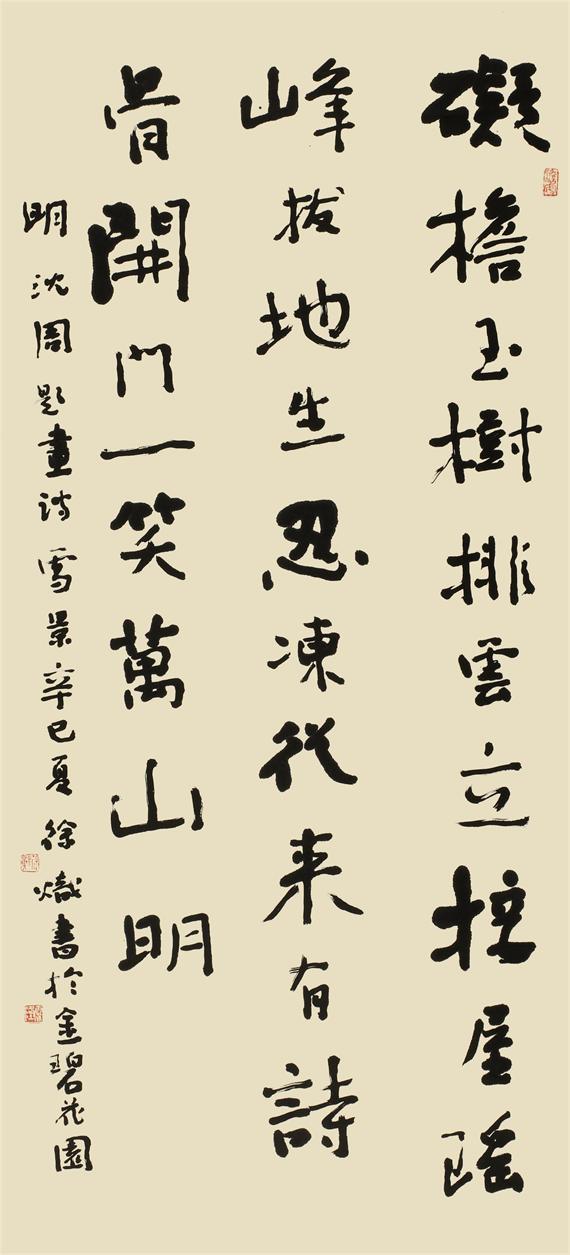 礙檐玉樹排雲立拄屋瑤
峰拔地生忍凍從來有詩
骨開門一笑萬山明
明沈周題畫詩雪景辛巳夏徐熾書於金碧花園